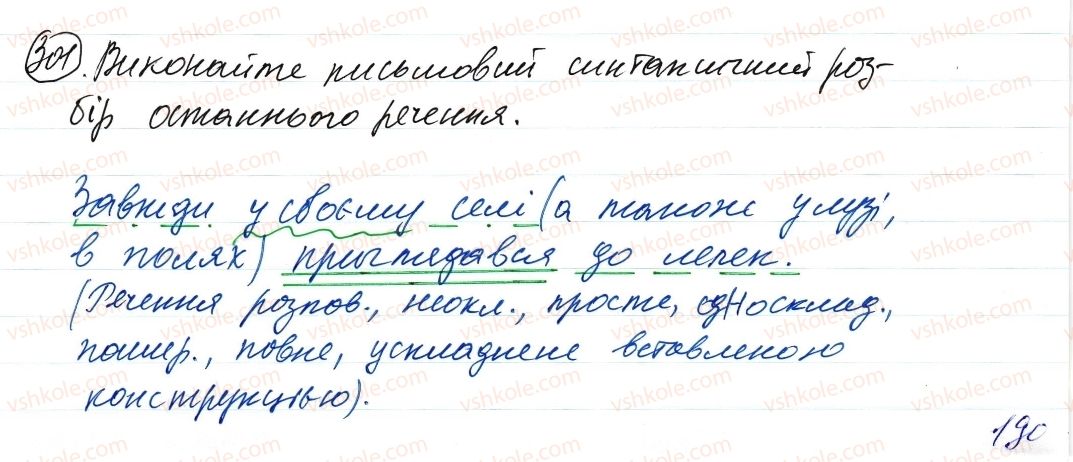 301. Виконайте письмовий синтаксичний роз-
бір останнього речення.
Завжди у своєму селі (а також у лузі,
в полях) приглядався до лелек.
(Речення розпов., неокл., просте, односклад.,
пошир., повне, ускладнене вставленою
конструкцією).
190